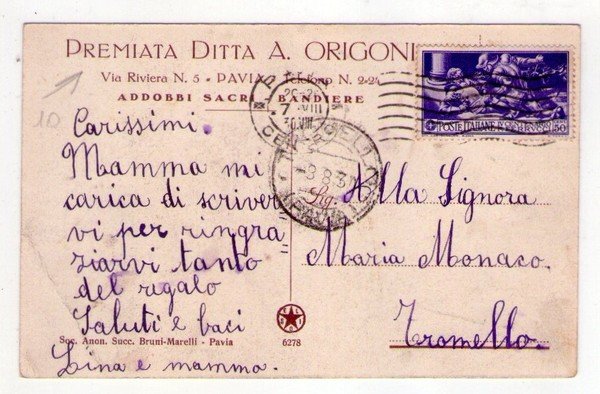 PREMIATA DITTA A. ORIGONI
Via Riviera N. 5 - PAVIA - Telefono N. 2-24
ADDOBBI SACRI - BANDIERE
10
POSTE ITALIANE
50
7 VIII
-8.8.30
Carissimi.
Mamma mi
carica di scriver
vi per ringra
ziarvi tanto
del regalo
Saluti e baci
Lina e mamma.
Sig.
Alla Signora
Maria Monaco.
Tromello.
Soc. Anon. Succ. Bruni-Marelli - Pavia
6278